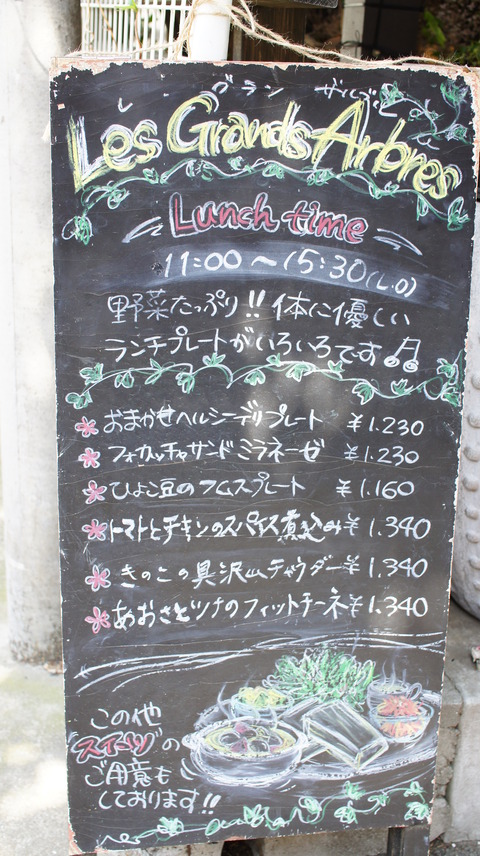 グラン ザルブル
Les Grands Arbres
Lunch time
11:00~15:30(L.O)
野菜たっぷり!! 体に優しい
ランチプレートがいろいろです♫
おまかせヘルシーデリプレート ¥1.230
フォカッチャサンドミラネーゼ ¥1.230
ひよこ豆のフムスプレート ¥1.160
トマトとチキンのスパイス煮込み ¥1.340
きのこの具沢山チャウダー ¥1.340
あおさとツナのフィットチーネ ¥1.340
この他
スイーツの
ご用意も
しております!!